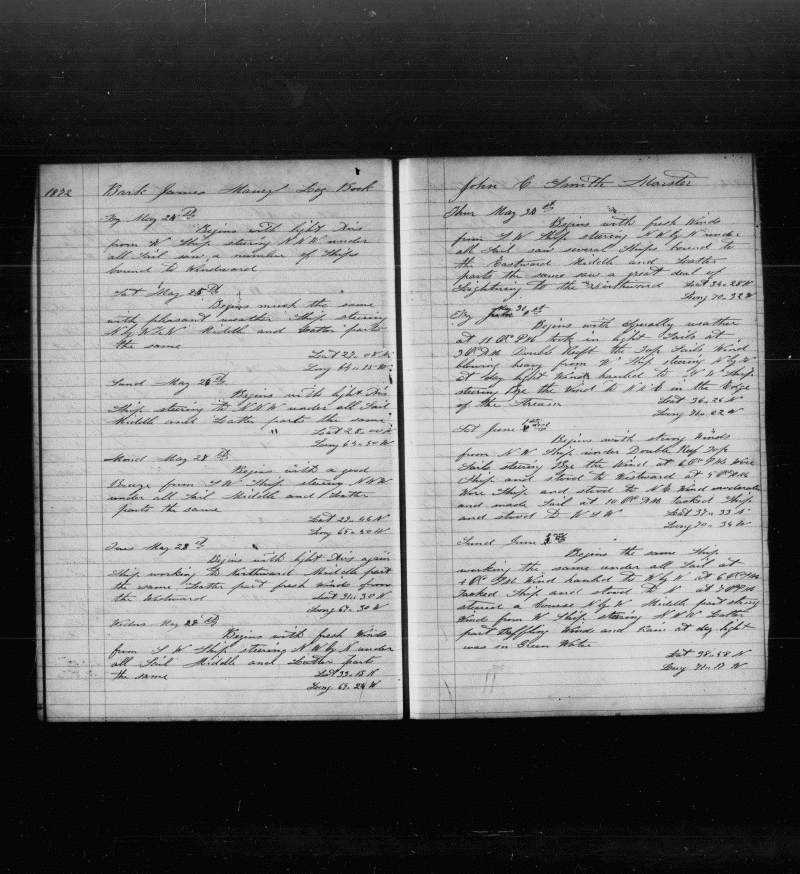 1872 Bark James Maury Log Book
Fry May 24th
Begins with light Airs
from W Ship steering N N W under
all Sail saw a number of Ships
bound to Windward
Sat May 25th
Begins much the same
with pleasant weather Ship steering
N by W & N Middle and Latter parts
the same
Lat 27-08 N
Long 64-15 W
Sund May 26th
Begins with light Airs
Ship steering to N N W under all Sail
Middle and Latter parts the same
" Lat 28- N
Long 64-50 W
Mond May 27th
Begins with a good
Breeze from S W Ship steering N N W
under all Sail Middle and Latter
parts the same
Lat 29-46 N
Long 65-50 W
Tues May 28th
Begins with light Airs again
Ship working to Northward Middle part
the same Latter part fresh Wind from
the Westward Lat 31-30 N
Long 67-30 W
Wedns May 29th
Begins with fresh Winds
from S W Ship steering N W by N under
all Sail Middle and Latter parts
the same Lat 33-15 N
Long 69-24 W
John C Smith Master
Thur May 30th
Begins with fresh Winds
from S W Ship steering N W by N under
all Sail saw several Ships bound to
the Eastward Middle and Latter
parts the same saw a great deal of
Lightning to the Northward Lat 34-28 N
Long 70-32 W
Fry May 31st
Begins with Squally weather
at 11 Oc PM took in light Sails at
3 Oc AM Double Reeft the Top Sails Wind
blowing heavy from W Ship steering N by W
at day light Wind hauled to N W Ship
steering Bye the Wind to N N E in the Edge
of the Stream Lat 36-26 N
Long 71-02 W
Sat June
Begins with strong Winds
from N W Ship under Double Reef Top
Sails steering Bye the Wind at 6 Oc PM Wore
Ship and stood to Westward at 5 Oc AM
Wore Ship and stood to N E Wind moderate
and made Sail at 10 Oc AM tacked Ship
and stood to W S W Lat 37-33 N
Long 70-34 W
Sund June
Begins the same Ship
working the same under all Sail at
4 Oc PM Wind hauled to W by N at 6 Oc PM
Tacked Ship and stood to N at
steered a Course N by W Middle part strong
Winds from W Ship steering N N W Latter
part Baffling Winds and Rain at day light
was in Green Water
Lat 38-58 N
Long 71-17 W